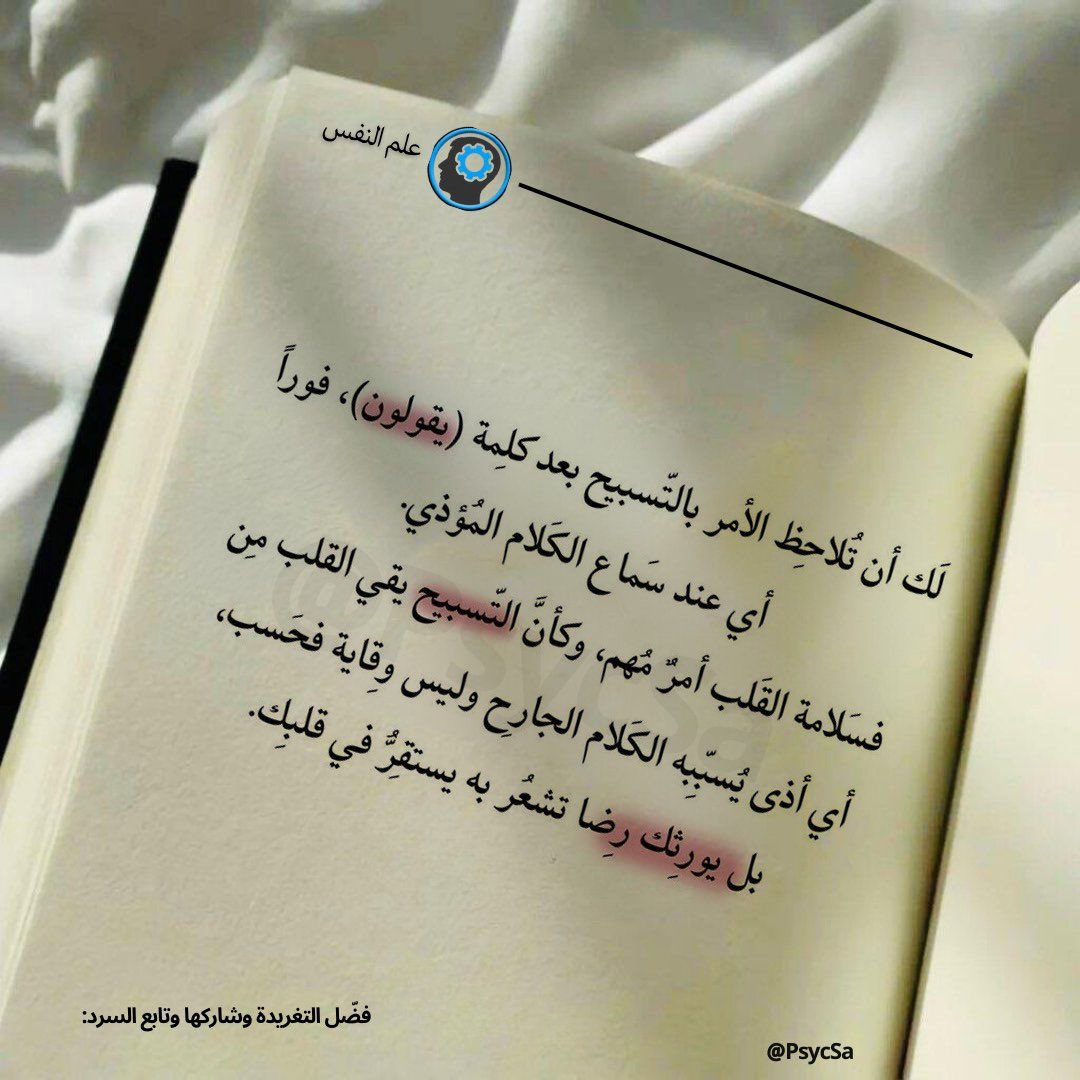 علم النفس
لَك أن تُلاحِظ الأمر بالتّسبيح بعد كلِمة (يقولون)، فوراً
أي عند سَماع الكَلام المُؤذي.
فسَلامة القَلب أمرٌ مُهم، وكأنَّ التّسبيح يقي القلب مِن
أي أذى يُسبّبِه الكَلام الجارِح وليس وقِاية فحَسب،
بل يورثِك رِضا تشعُر به يستقرُّ في قلبِك.
@PsycSa
فضّل التغريدة وشاركها وتابع السرد:
@PsycSa